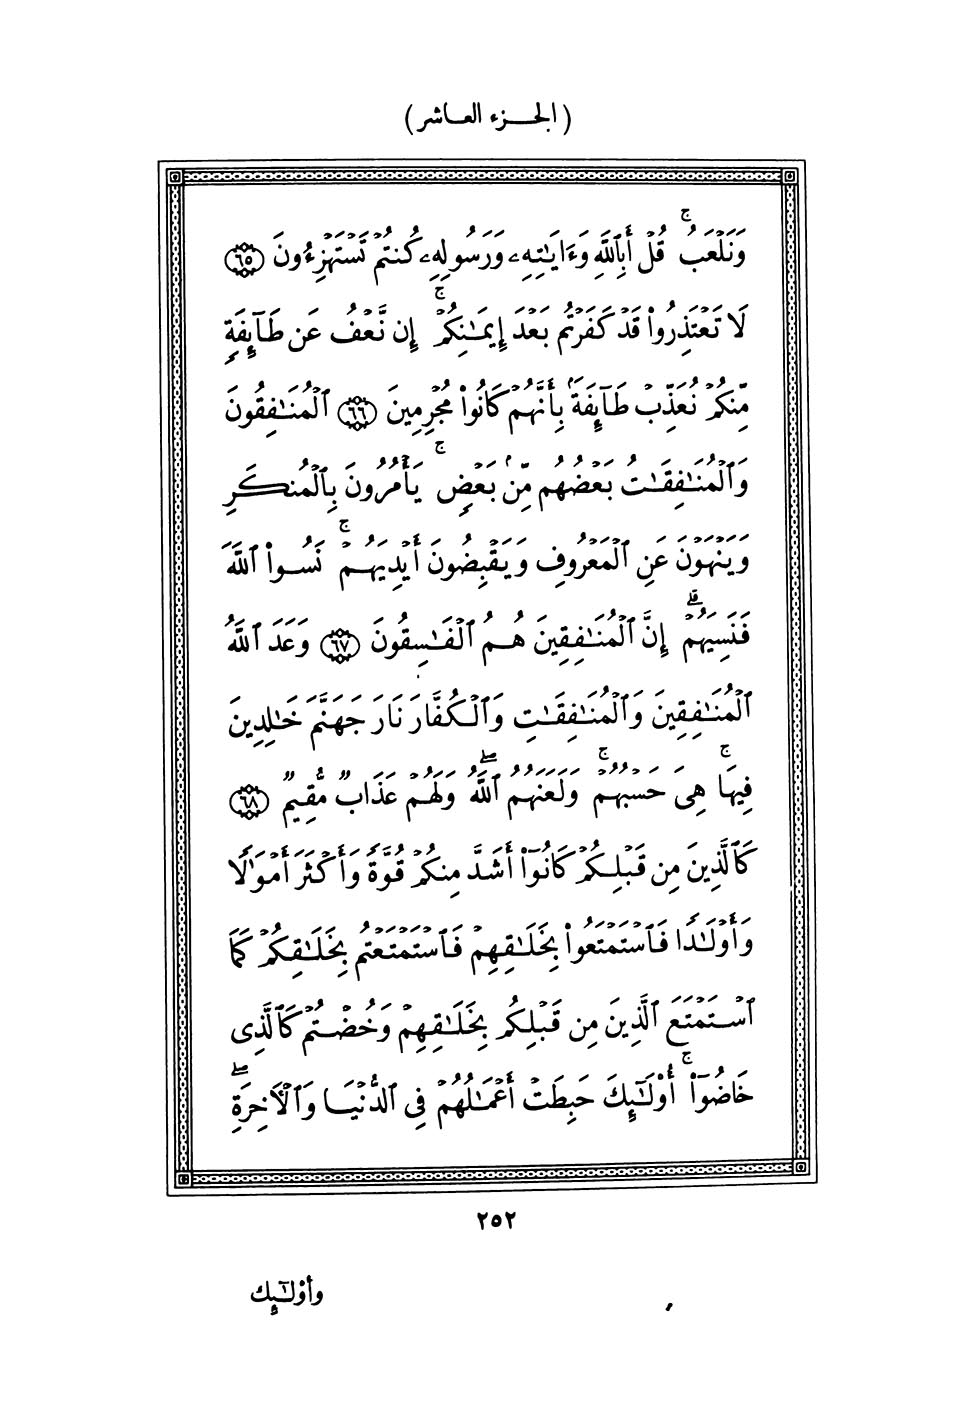 (الجزء العاشر)
وَنَلْعَبُ ۚ قُلْ أَبِٱللَّهِ وَءَايَـٰتِهِۦ وَرَسُولِهِۦ كُنتُمْ تَسْتَهْزِءُونَ ٦٥
لَا تَعْتَذِرُوا۟ قَدْ كَفَرْتُم بَعْدَ إِيمَـٰنِكُمْ ۚ إِن نَّعْفُ عَن طَآئِفَةٍ
مِّنكُمْ نُعَذِّبْ طَآئِفَةَۢ بِأَنَّهُمْ كَانُوا۟ مُجْرِمِينَ ٦٦ ٱلْمُنَـٰفِقُونَ
وَٱلْمُنَـٰفِقَـٰتُ بَعْضُهُم مِّنۢ بَعْضٍ ۚ يَأْمُرُونَ بِٱلْمُنكَرِ
وَيَنْهَوْنَ عَنِ ٱلْمَعْرُوفِ وَيَقْبِضُونَ أَيْدِيَهُمْ ۚ نَسُوا۟ ٱللَّهَ
فَنَسِيَهُمْ ۗ إِنَّ ٱلْمُنَـٰفِقِينَ هُمُ ٱلْفَـٰسِقُونَ ٦٧ وَعَدَ ٱللَّهُ
ٱلْمُنَـٰفِقِينَ وَٱلْمُنَـٰفِقَـٰتِ وَٱلْكُفَّارَ نَارَ جَهَنَّمَ خَـٰلِدِينَ
فِيهَا ۚ هِىَ حَسْبُهُمْ ۚ وَلَعَنَهُمُ ٱللَّهُ ۖ وَلَهُمْ عَذَابٌ مُّقِيمٌ ٦٨
كَٱلَّذِينَ مِن قَبْلِكُمْ كَانُوٓا۟ أَشَدَّ مِنكُمْ قُوَّةً وَأَكْثَرَ أَمْوَٰلًا
وَأَوْلَـٰدًا فَٱسْتَمْتَعُوا۟ بِخَلَـٰقِهِمْ فَٱسْتَمْتَعْتُم بِخَلَـٰقِكُمْ كَمَا
ٱسْتَمْتَعَ ٱلَّذِينَ مِن قَبْلِكُم بِخَلَـٰقِهِمْ وَخُضْتُمْ كَٱلَّذِى
خَاضُوٓا۟ ۚ أُو۟لَـٰٓئِكَ حَبِطَتْ أَعْمَـٰلُهُمْ فِى ٱلدُّنْيَا وَٱلْـَٔاخِرَةِ ۖ
٢٥٢
وأو۟لَـٰٓئِك